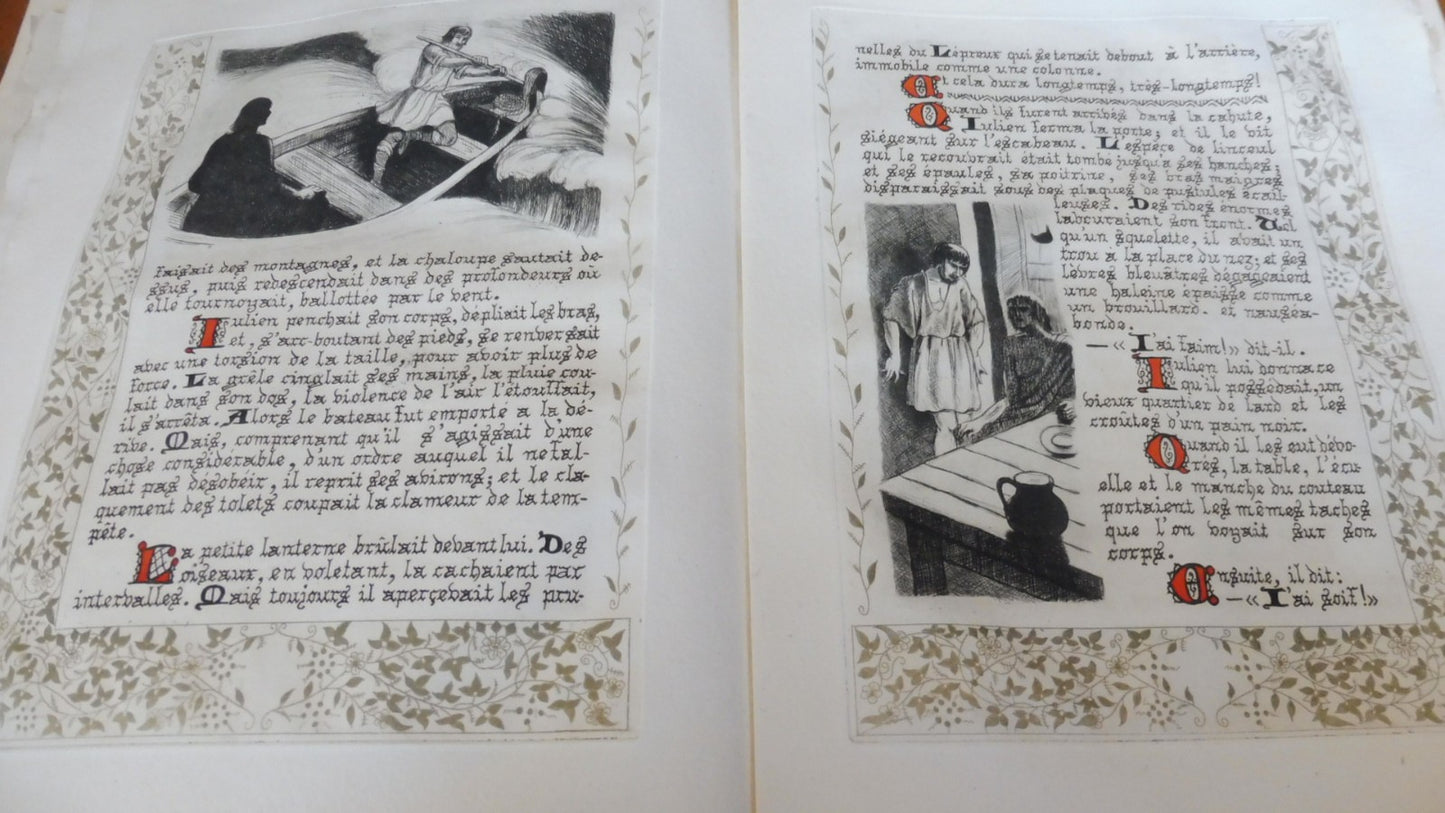 faisait des montagnes, et la chaloupe sautait de-
ssus, puis redescendait dans des profondeurs où
elle tournoyait, ballottée par le vent.
Julien penchait son corps, dépliait les bras,
et, s'arc-boutant des pieds, se renversait
avec une torsion de la taille, pour avoir plus de
force. La grêle cinglait ses mains, la pluie cou-
lait dans son dos, la violence de l'air l'étouffait,
il s'arrêta. Alors le bateau fut emporté a la dé-
rive. Mais, comprenant qu'il s'agissait d'une
chose considérable, d'un ordre auquel il n'etal-
lait pas désobéir, il reprit ses avirons; et le cla-
quement des tolets coupait la clameur de la tem-
pête.
La petite lanterne brûlait devant lui. Des
oiseaux, en voletant, la cachaient par
intervalles. Mais toujours il aperçevait les pru-
nelles du Lépreux qui se tenait debout à l'arrière,
immobile comme une colonne.
Et cela dura longtemps, très-longtemps!
Quand ils furent arrivés dans la cahute,
Julien ferma la porte; et il le vit
siégeant sur l'escabeau. L'espèce de linceul
qui le recouvrait était tombe jusqu'a ses hanches;
et ses épaules, sa poitrine, ses bras maigres
disparaissait sous des plaques de pustules écail-
leuses. Des rides énormes
labouraient son front. Tel
qu'un squelette, il avait un
trou a la place du nez; et ses
lèvres bleuâtres dégageaient
une haleine épaisse comme
un brouillard. et nauséa-
bonde.
—«J'ai faim!» dit-il.
Julien lui donna ce
qu'il possédait, un
vieux quartier de lard et les
croûtes d'un pain noir.
Quand il les eut dévo-
rés, la table, l'écu-
elle et le manche du couteau
portaient les mêmes taches
que l'on voyait sur son
corps.
Ensuite, il dit:
—«J'ai soif!»